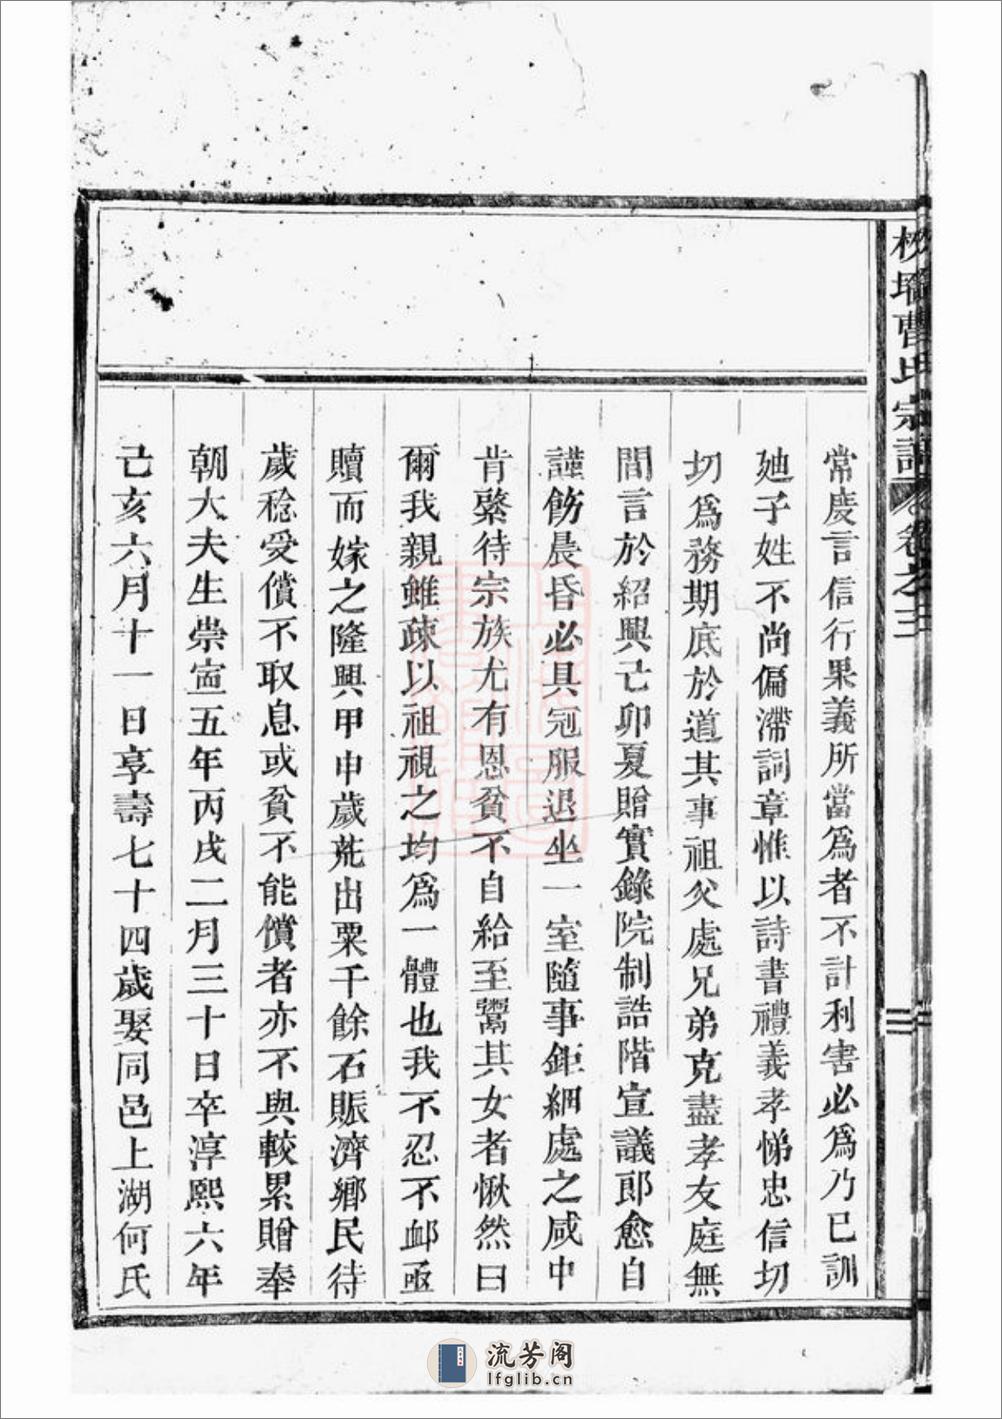 校塘曹氏宗譜 卷之三
常慶言信行果義所當為者不計利害必為乃已訓
廸子姓不尚偏滯詞章惟以詩書禮義孝悌忠信切
切為務期底於道其事祖父處兄弟克盡孝友庭無
間言於紹興己卯夏贈實錄院制誥階宣議郎愈自
謹飭晨昏必具冠服退坐一室隨事鉅細處之咸中
肯綮待宗族尤有恩貧不自給至鬻其女者愀然曰
爾我親雖疎以祖視之均為一體也我不忍不卹亟
贖而嫁之隆興甲申歲荒出粟千餘石賑濟鄉民待
歲稔受償不取息或貧不能償者亦不與較累贈奉
朝大夫生崇寧五年丙戌二月三十日卒淳熙六年
己亥六月十一日享壽七十四歲娶同邑上湖何氏
流芳阁
lfglib.cn